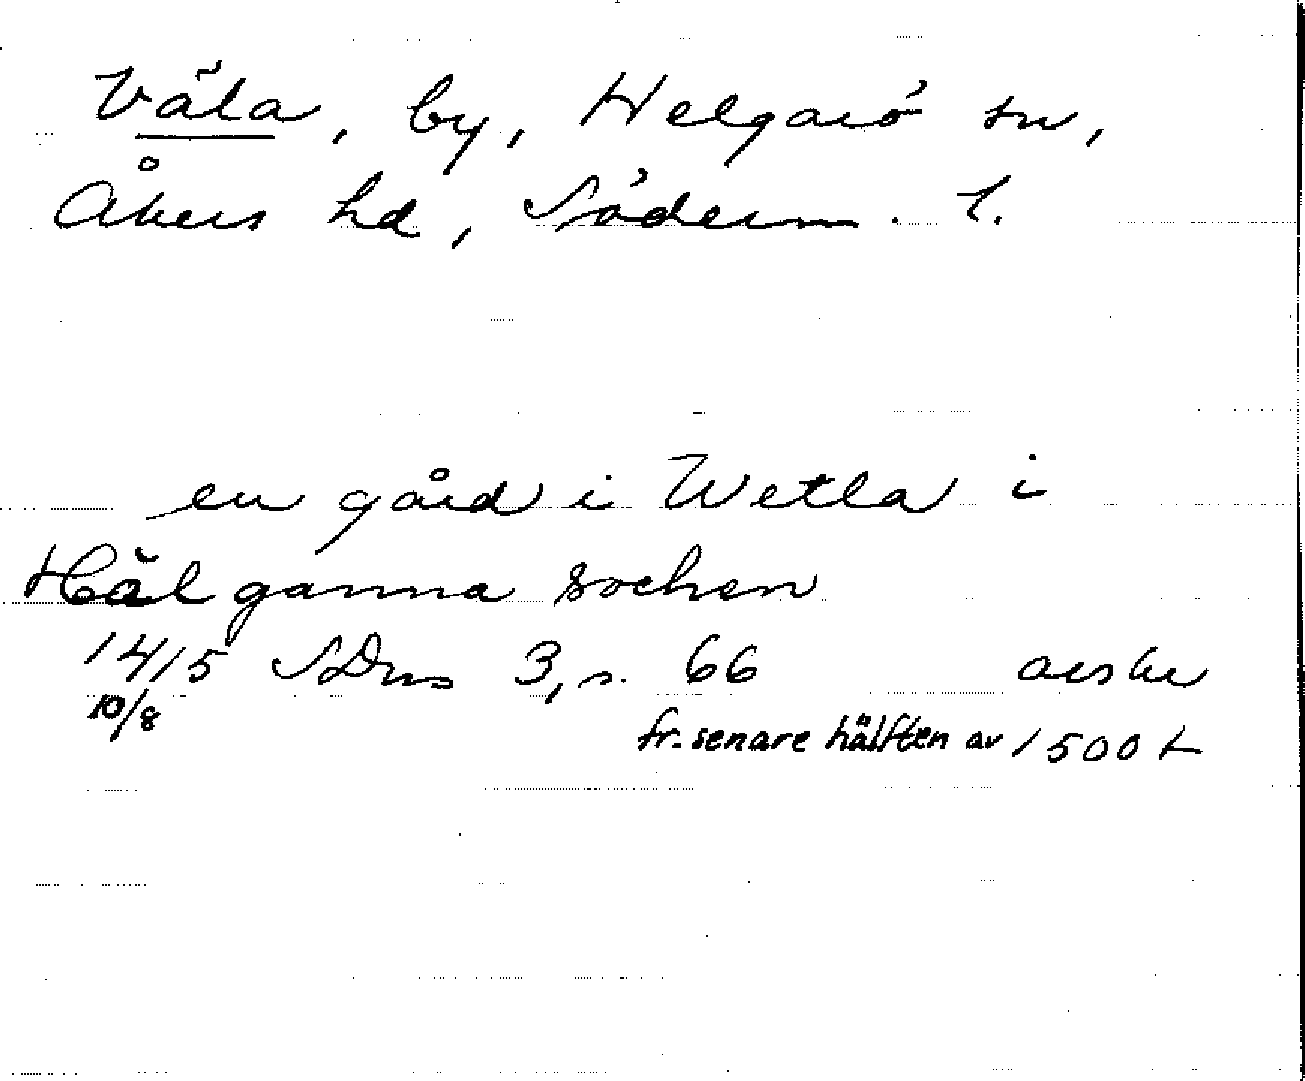 Väla, by, Helgarö sn,
Åkers hd, Söderm. l.
en gård i Wetla i
Hälganna sochen
1415 SDns 3, s. 66 avskr
10/8
fr. senare hälften av 1500 t